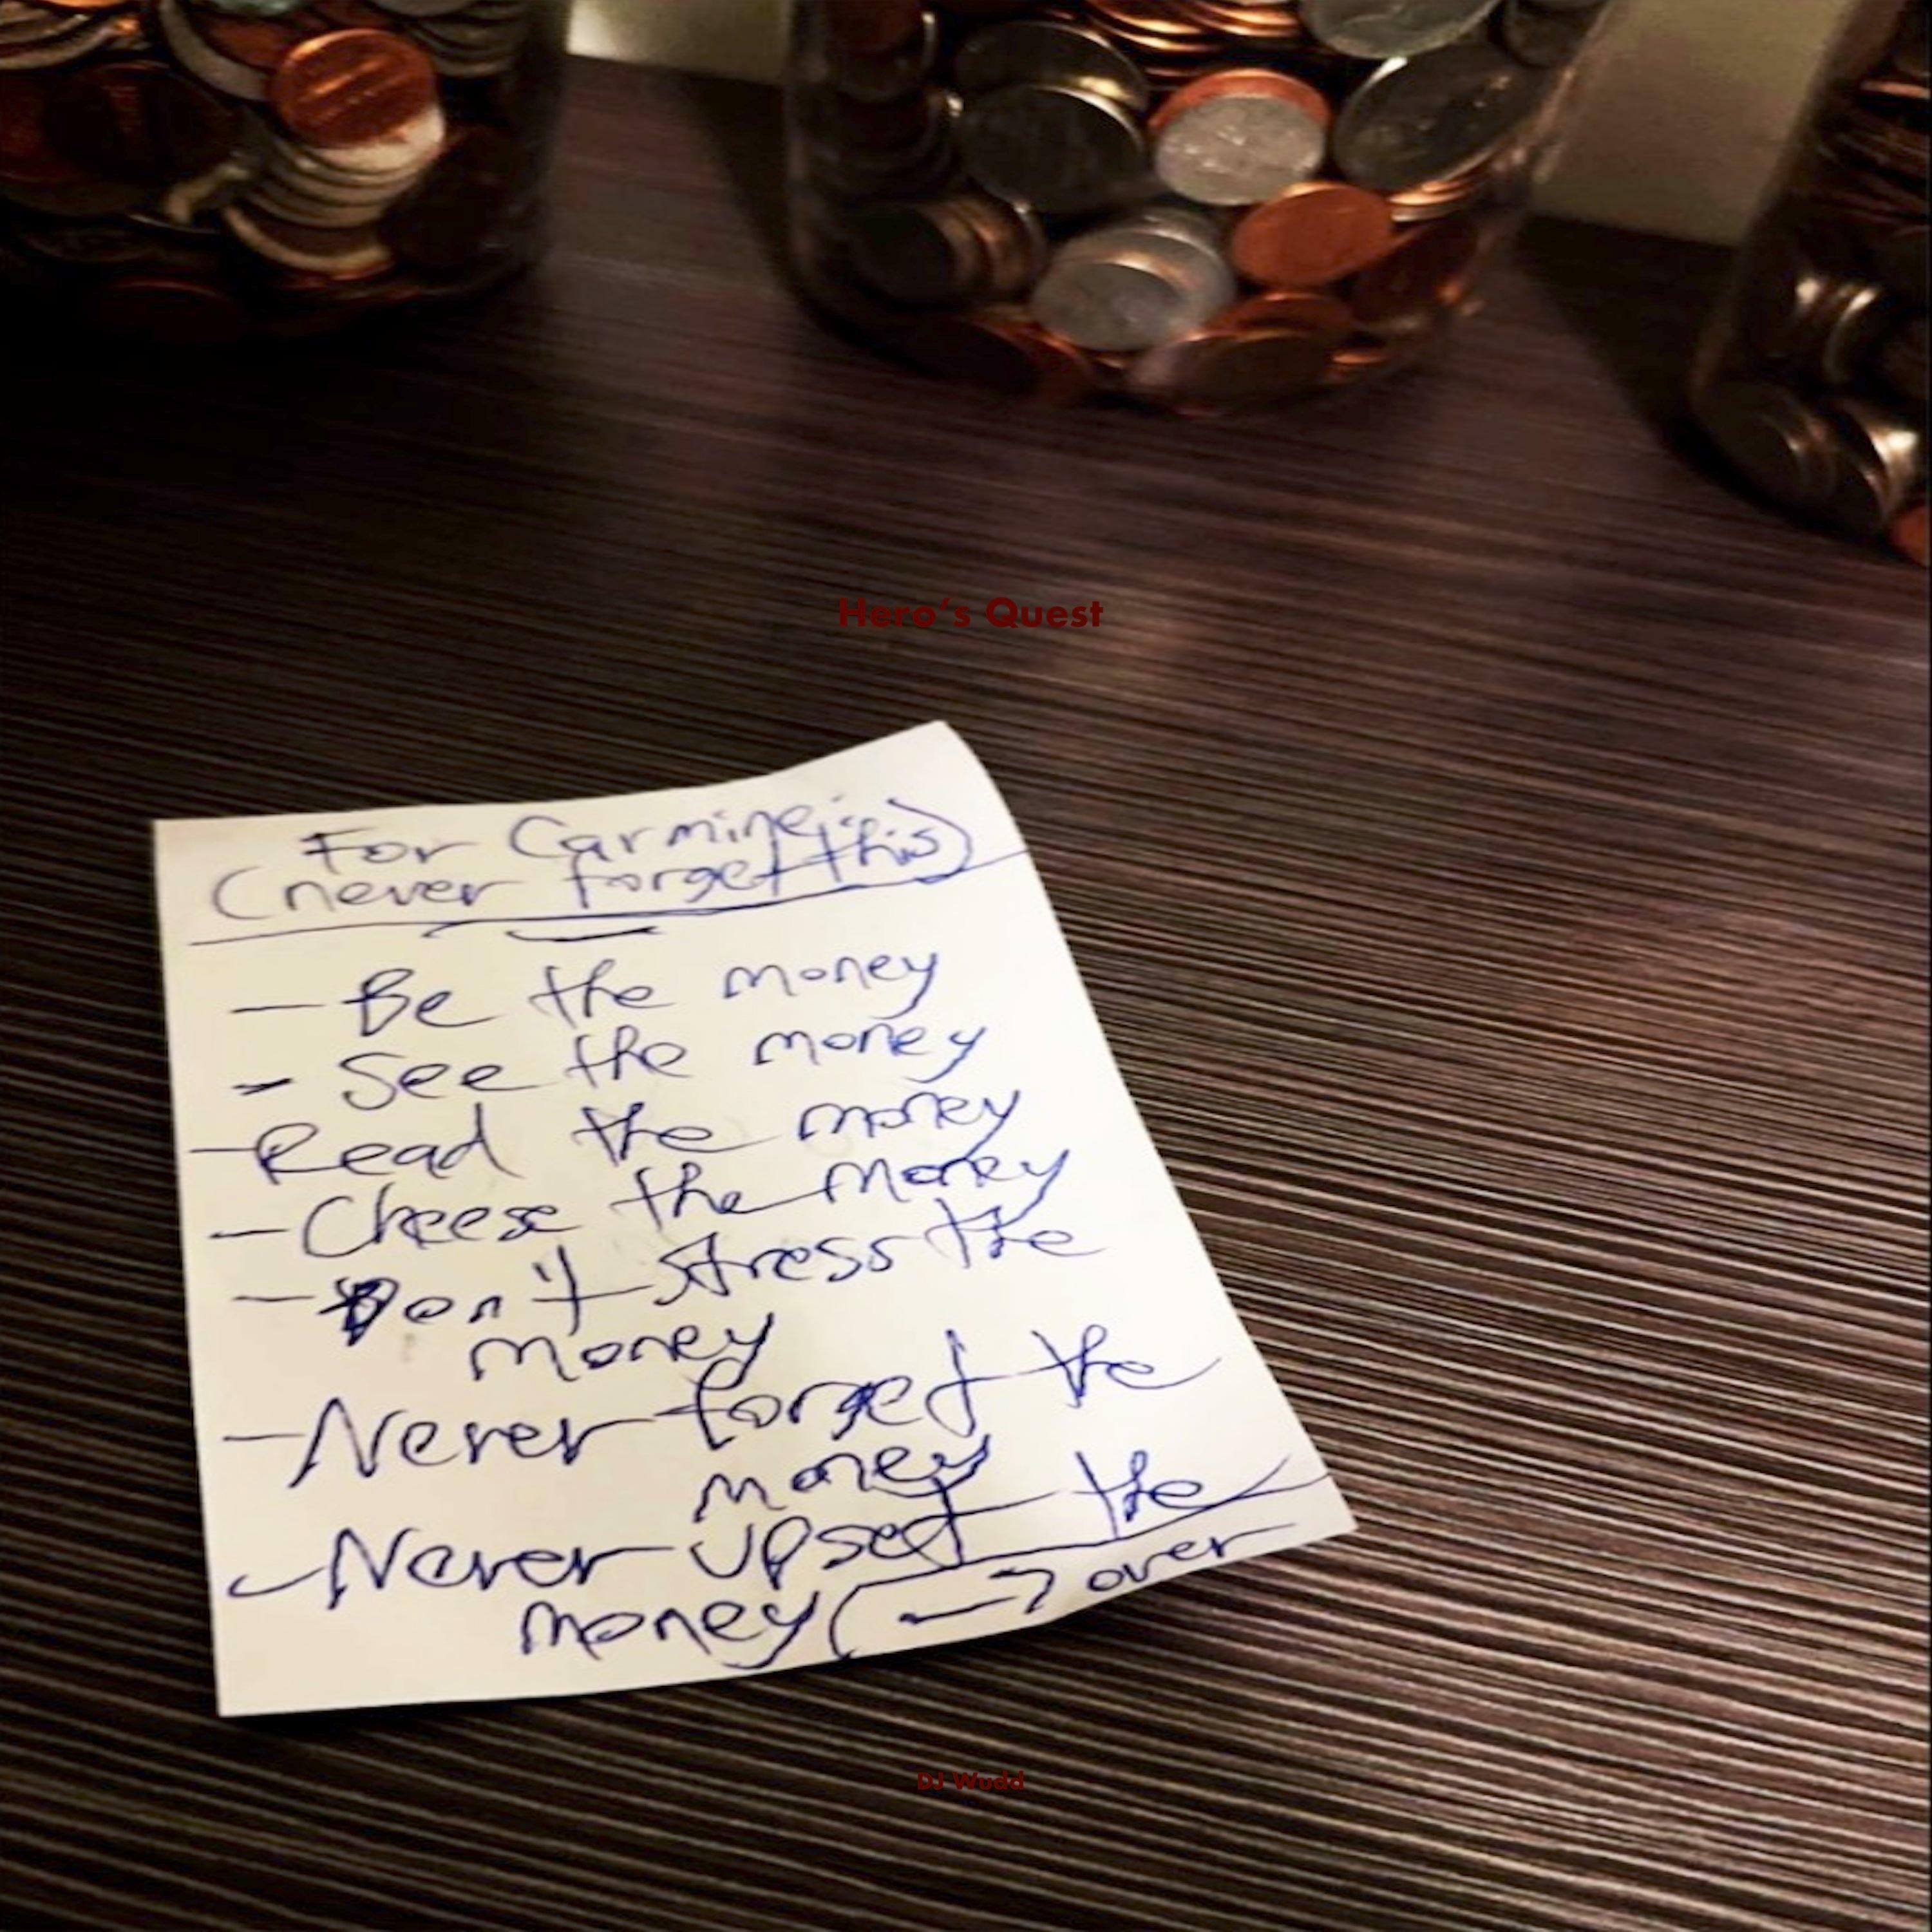 Hero's Quest
For Carmine:
(never forget this)
- Be the money
- See the money
- Read the money
- Cheese the money
- Don't stress the
money
- Never forget the
money
- Never upset the
money (→ over
DJ Wudd